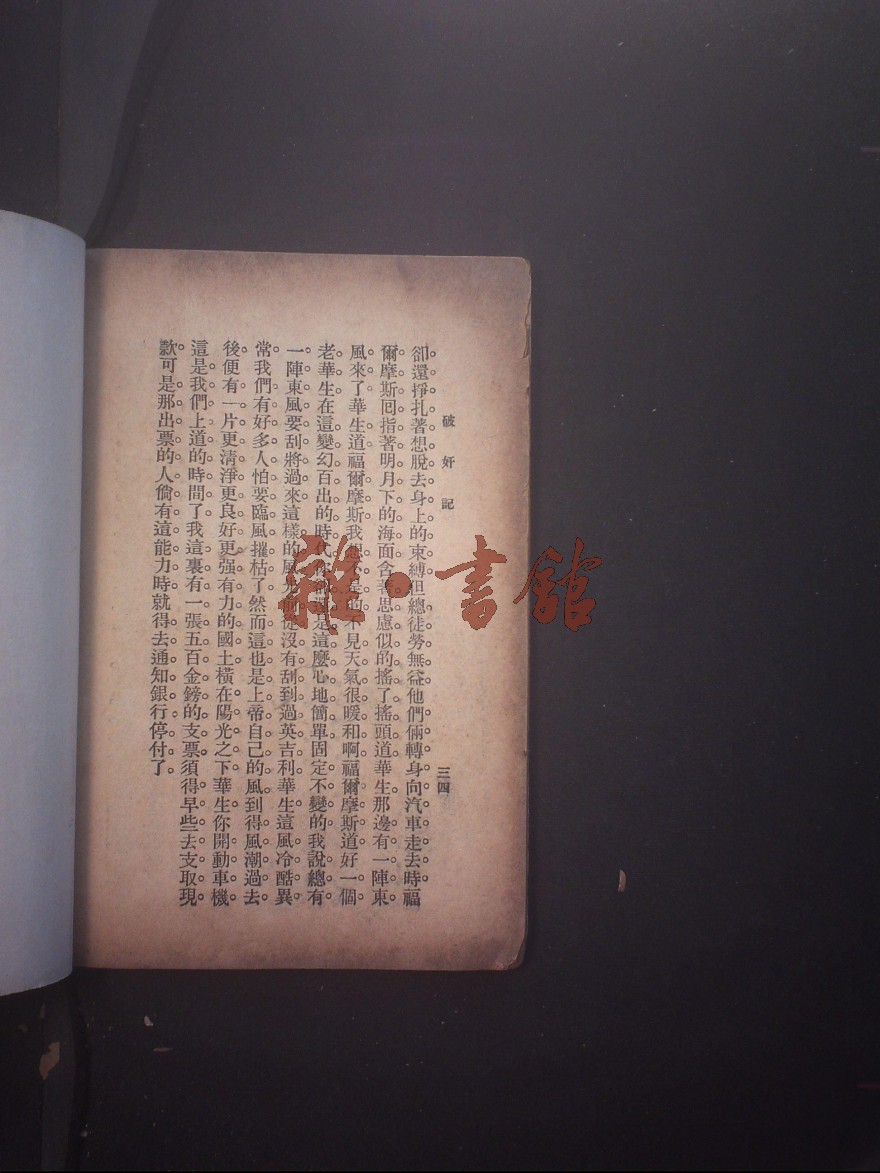 破奸記
三四
卻。還掙扎著想脫去身上的束縛。但總徒勞無益。他們倆轉身向汽車走去時。福
爾摩斯回指著明月下的海面。含著思慮似的搖了搖頭道。華生。那邊有一陣東
風來了。華生道。福爾摩斯。我想不是的。不見天氣很暖和啊。福爾摩斯道。好一個
老華生。在這變幻百出的時代。你還是這麼心地簡單固定不變的。我說總有
一陣東風要刮將過來。這樣的風光前從沒有刮到過英吉利。華生。這風冷酷異
常。我們有好多人怕要臨風摧枯了。然而這也是上帝自己的風。到得風潮過去
後。便有一片更淸淨更良好更强有力的國土橫在陽光之下。華生。你開動車機。
這是我們上道的時間了。我這裏有一張五百金鎊的支票。須得早些去支取現
款。可是那出票的人倘有這能力時。就得去通知銀行停付了。
雜·書館